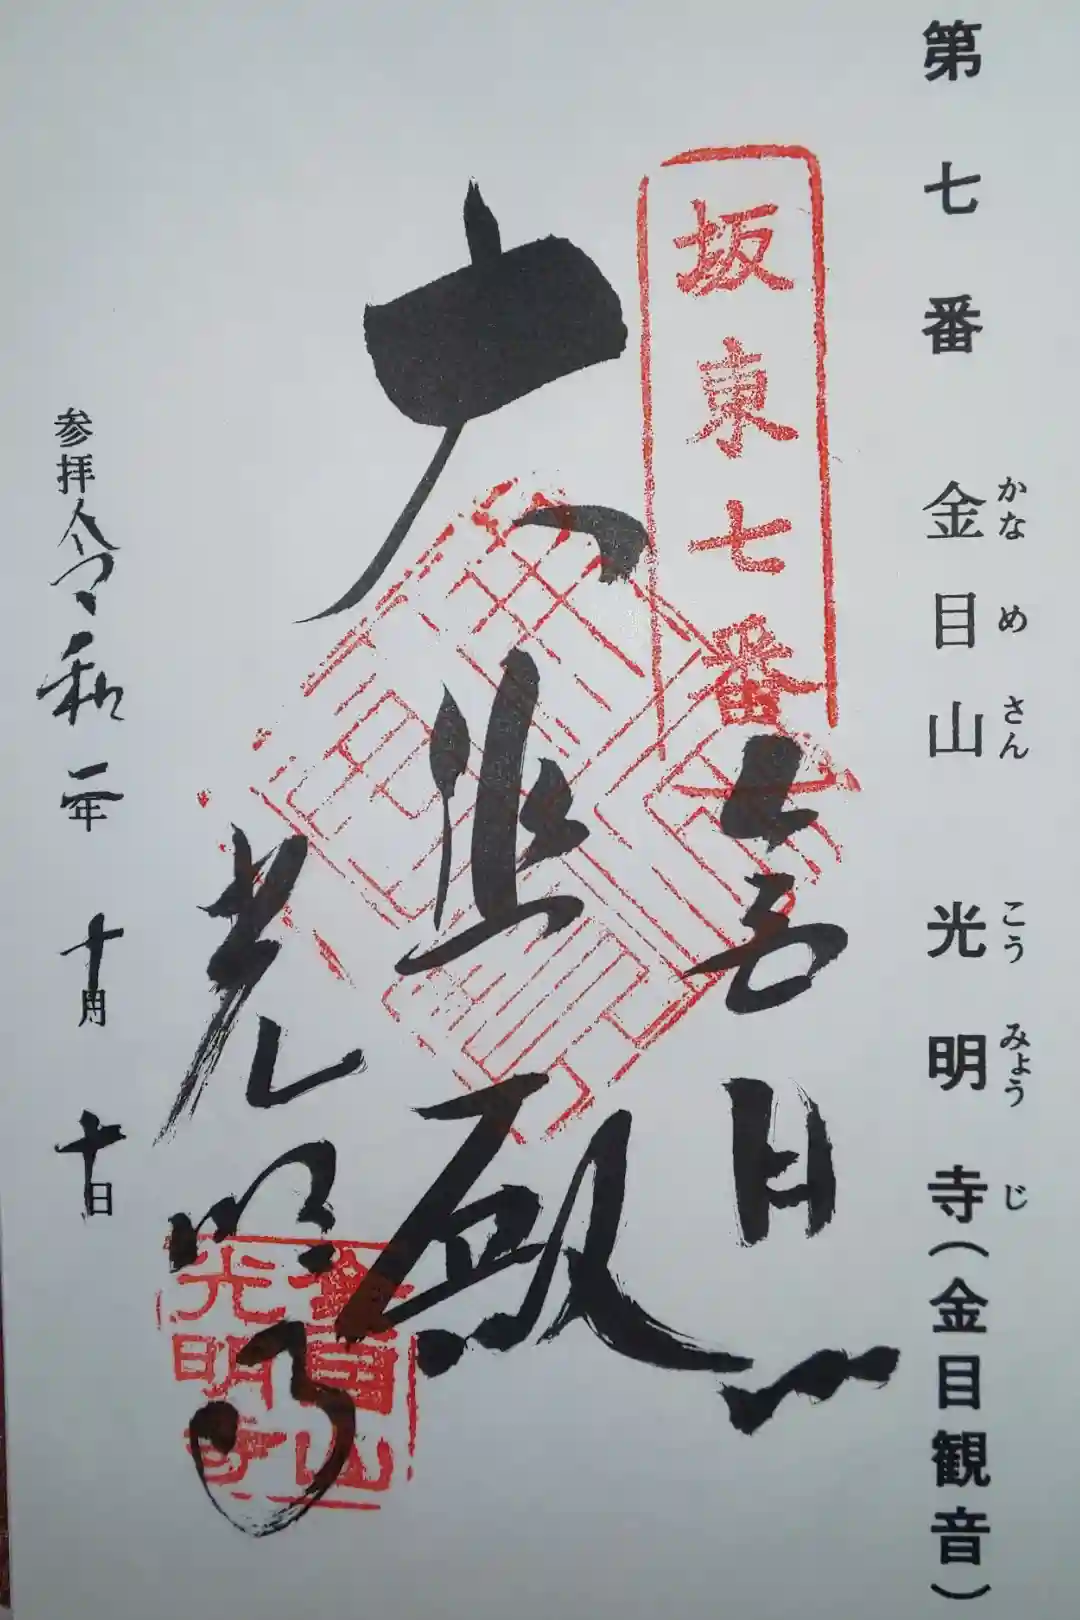 第七番 金目山 光明寺(金目観音)
かなめさん こうみょうじ
坂東七番
大悲殿
光明寺
金目山
光明寺
参拝令和二年十月十日